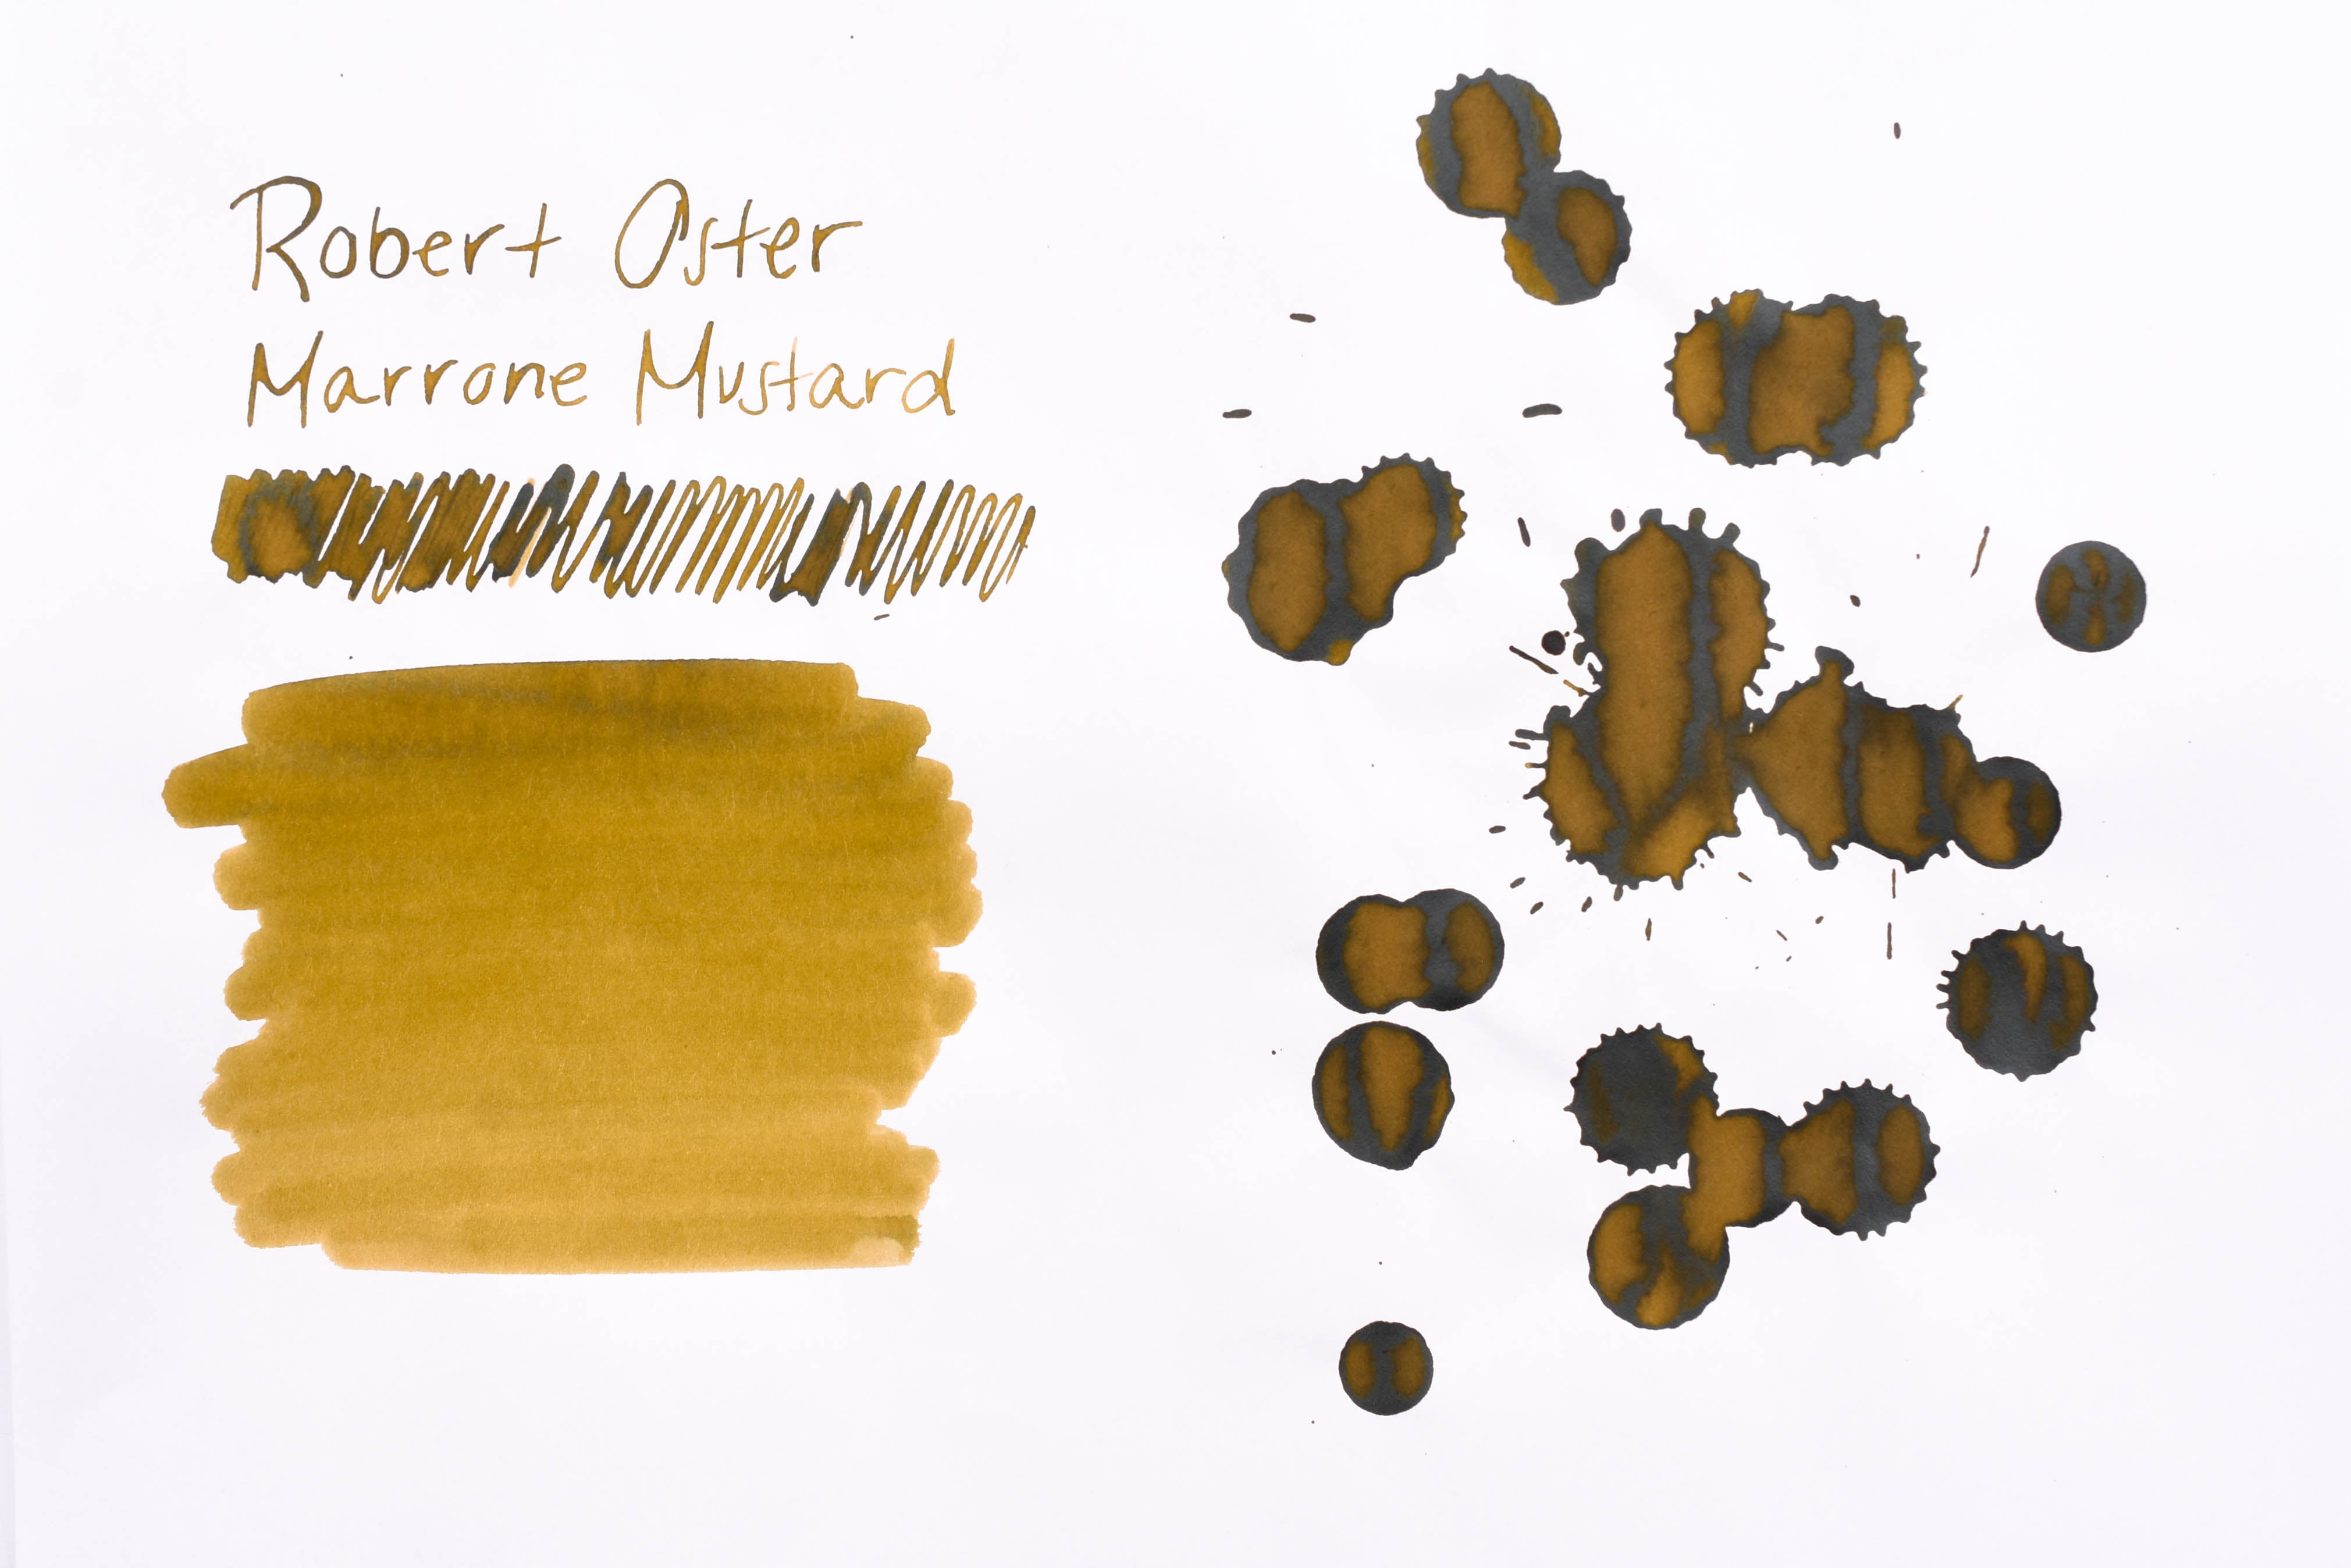 Robert Oster
Marrone Mustard